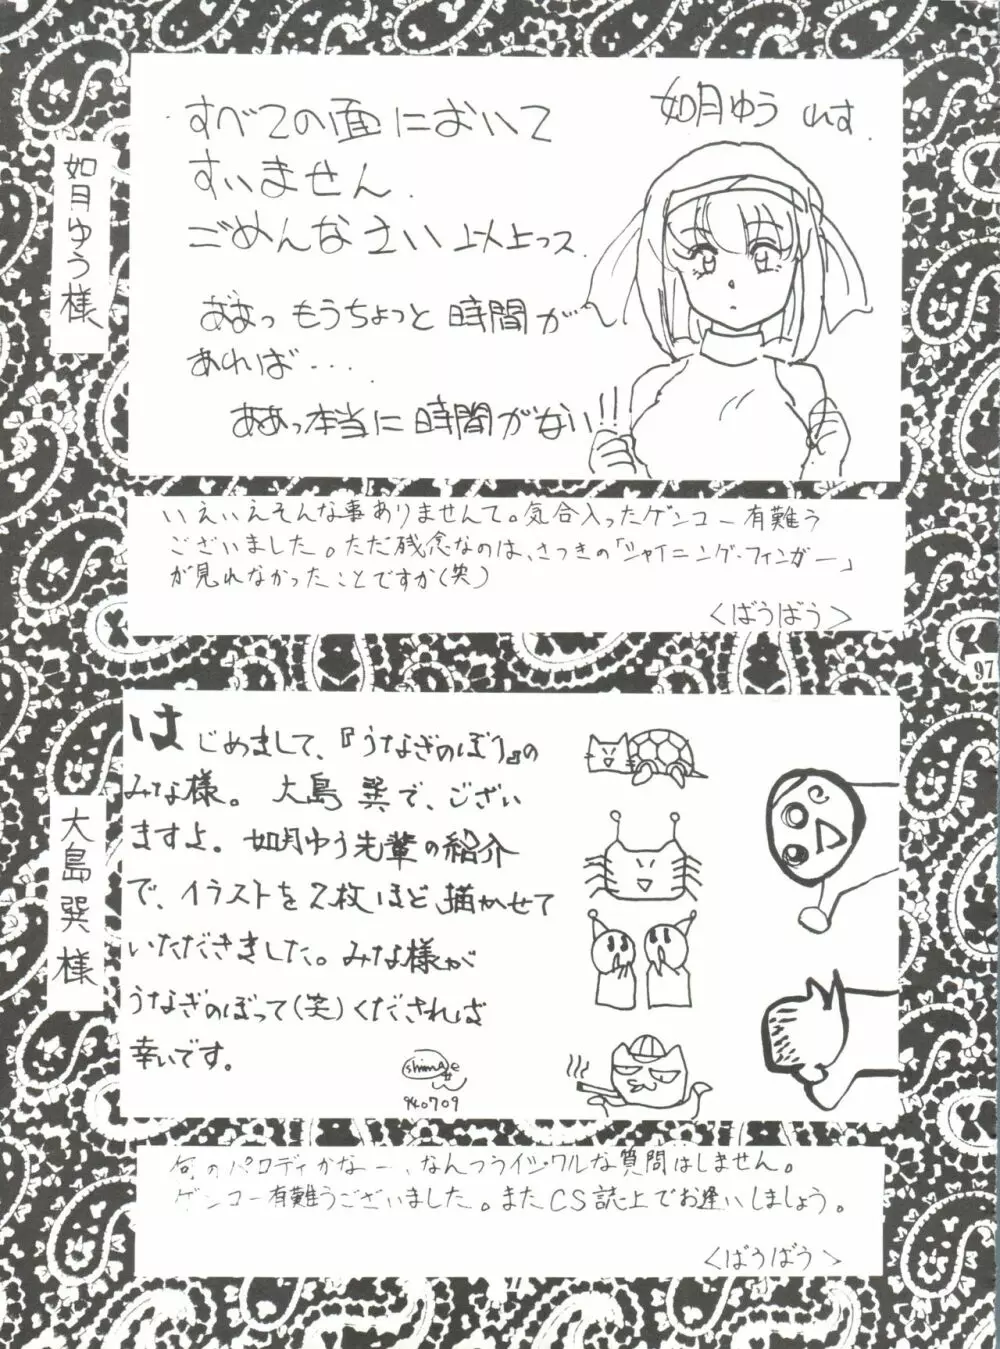 如月ゆう様
如月ゆう ですす.
すべての面において
すいません.
ごめんなさい 以上っス.
ああっ もうちょっと 時間が
あれば・・・.
ああっ本当に時間がない!!
いえいえそんな事ありませんて。気合入ったゲンコー有難う
ございました。ただ残念なのは、さつきの「シャイニング・フィンガー」
が見れなかったことですか(笑)
<ばうばう>
97
大島巽様
はじめまして、『うなぎのぼり』の
みな様。大島 巽で、ござい
ますよ。如月ゆう先輩の紹介
で、イラストを2枚ほど、描かせて
いただきました。みな様が
うなぎのぼって(笑)くだされば
幸いです。
940709
何のパロディかなー、なんつうイジワルな質問はしません。
ゲンコー有難うございました。またCS誌上でお逢いしましょう。
<ばうばう>